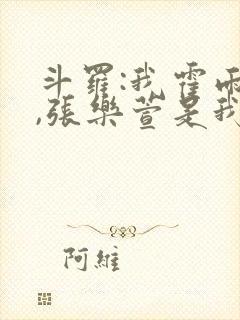 斗羅:我霍雨
,張樂萱是我
阿維